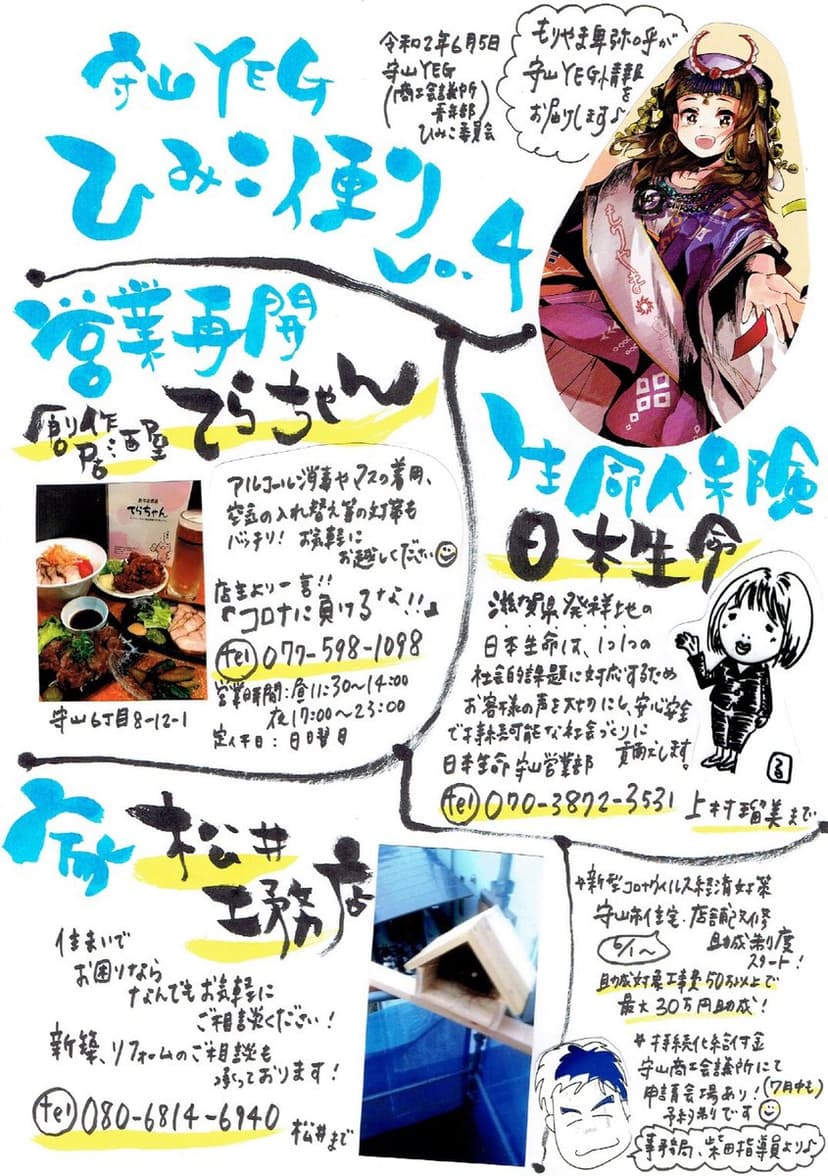 守山YEG
ひみこ便り
Vo.4
令和2年6月5日
守山YEG
(商工会議所
青年部)
ひみこ委員会
もりやま卑弥呼が
守山YEG情報
を
お届けします♪
もりやま
営業再開
創作
居酒屋
てらちゃん
てらちゃん
アルコール消毒やマスの着用、
空気の入れ替え等の対策も
バッチリ! お気軽に
お越しください
店主より一言!!
『コロナに負けるな!!』
tel 077-598-1098
営業時間:昼11:30〜14:00
夜17:00〜23:00
定休日:日曜日
守山6丁目8-12-1
生命保険
日本生命
滋賀県発祥地の
日本生命は、1つ1つの
社会的課題に対応するため
お客様の声を大切にし、安心安全
で持続可能な社会づくりに
貢献します。
日本生命 守山営業部
tel 070-3872-3531 上村瑠美まで
る
松井
工務店
住まいで
お困りなら
なんでもお気軽に
ご相談ください!
新築、リフォームのご相談も
承っております!
tel 080-6814-6940 松井まで
新型コロナウィルス経済対策
守山市住宅・店舗改修
助成制度
6/1〜
スタート!
助成対象工事費50万以上で
最大30万円助成!
持続化給付金
守山商工会議所にて
申請会場あり!(7月中も)
予約制です
事務局、柴田指導員より♪